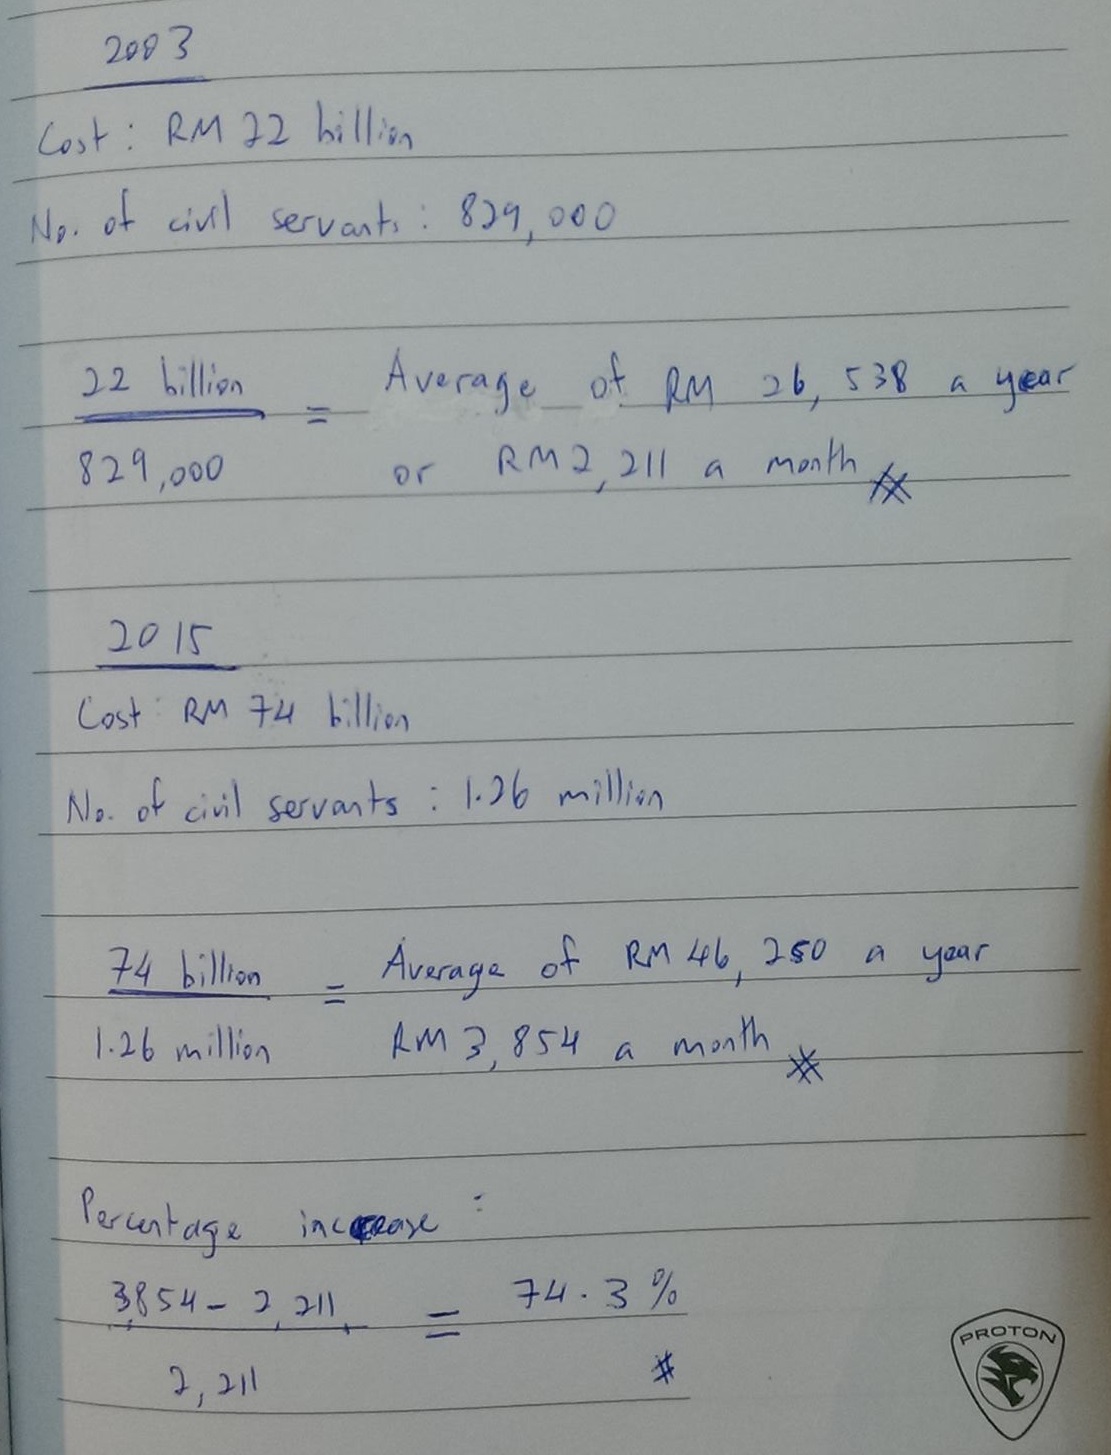 2003
Cost: RM 22 billion
No. of civil servants: 829,000
22 billion = Average of RM 26,538 a year
829,000 or RM 2,211 a month
2015
Cost: RM 74 billion
No. of civil servants: 1.26 million
74 billion = Average of RM 46,250 a year
1.26 million RM 3,854 a month
Percentage increase:
3,854 - 2,211 = 74.3%
2,211
PROTON